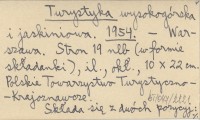 Turystyka wysokogórska
i jaskiniowa. 1954. – War-
szawa. Stron 19 nlb (w formie
składanki), il., okł., 10 x 22 cm.
Polskie Towarzystwo Turystyczno-
-krajoznawcze.
Składa się z dwóch pozycji: